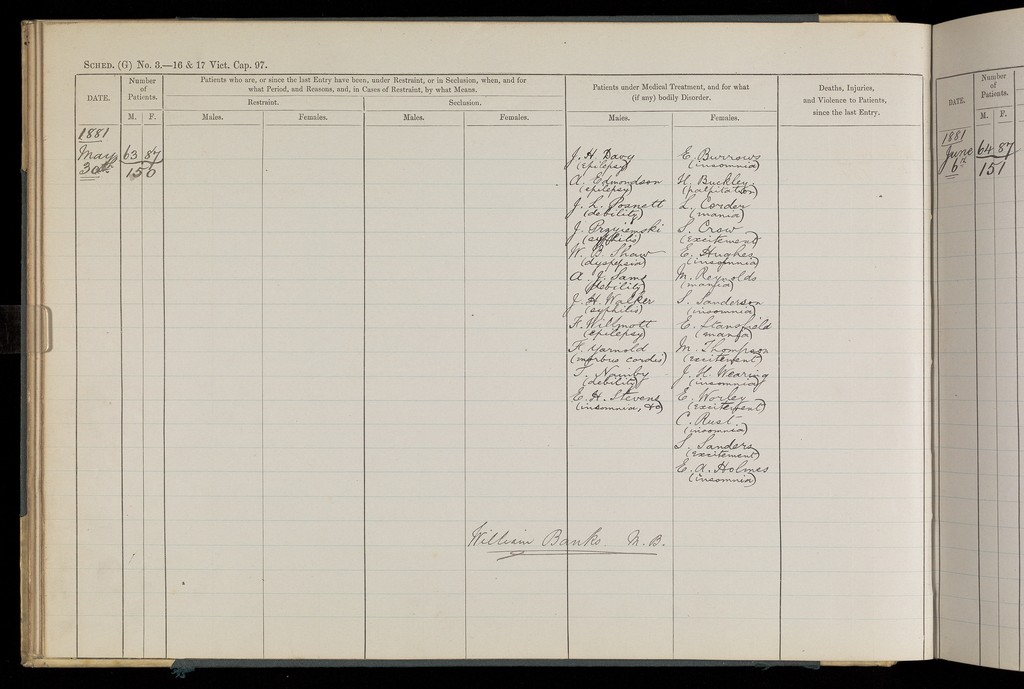 SCHED. (G) No. 3.—16 & 17 Vict. Cap. 97.
DATE.
Number
of
Patients.
M. F.
Patients who are, or since the last Entry have been, under Restraint, or in Seclusion, when, and for
what Period, and Reasons, and, in Cases of Restraint, by what Means.
Restraint.
Seclusion.
Males.
Females.
Males.
Females.
Patients under Medical Treatment, and for what
(if any) bodily Disorder.
Males.
Females.
Deaths, Injuries,
and Violence to Patients,
since the last Entry.
1881
May
30th
63 87
150
J. H. Davy
(epilepsy)
A. Edmondson
(epilepsy)
J. L. Posnett
(debility)
J. Przyiemski
(syphilis)
W. B. Shaw
(dyspepsia)
A. J. Sams
(debility)
J. H. Walker
(syphilis)
F. Willmott
(epilepsy)
F. Yarnold
(morbus cordis)
T. Namby
(debility)
E. H. Stevens
(insomnia, &c)
E. Burrows
(insomnia)
H. Buckley
(palpitation)
L. Corder
(mania)
S. Crow
(excitement)
E. Hughes
(insomnia)
M. Reynolds
(mania)
S. Sanderson
(insomnia)
E. Stansfield
(mania)
M. Thompson
(excitement)
J. H. Wearing
(insomnia)
E. Worley
(excitement)
C. Rust
(insomnia)
S. Sanders
(excitement)
E. A. Holmes
(insomnia)
William Banks M.B.
DATE.
Number
of
Patients.
M. F.
1881
June
6th
64 87
151